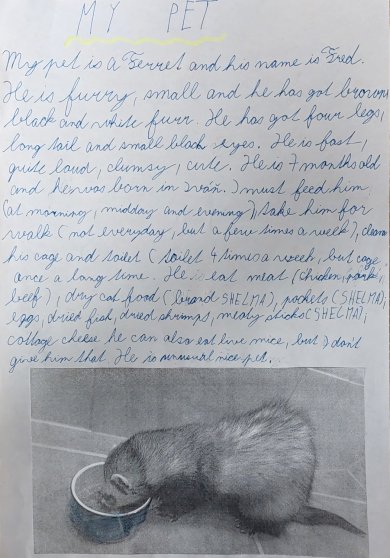 MY PET
My pet is a Ferret and his name is Fred.
He is furry, small and he has got brown
black and white furr. He has got four legs,
long tail and small black eyes. He is fast,
quite loud, clumsy, cute. He is 7 months old
and he was born in Ivaň. I must feed him
(at morning, midday and evening), take him for
walk (not everyday, but a few times a week), clean
his cage and toilet (toilet 4 times a week, but cage
once a long time. He is eat meat (chicken, pork,
beef), dry cat food (brand SHELMA), pockets (SHELMA),
eggs, dried fish, dried shrimps, meaty sticks (SHELMA),
cottage cheese he can also eat live mice, but I don't
give him that. He is unusual nice pet.